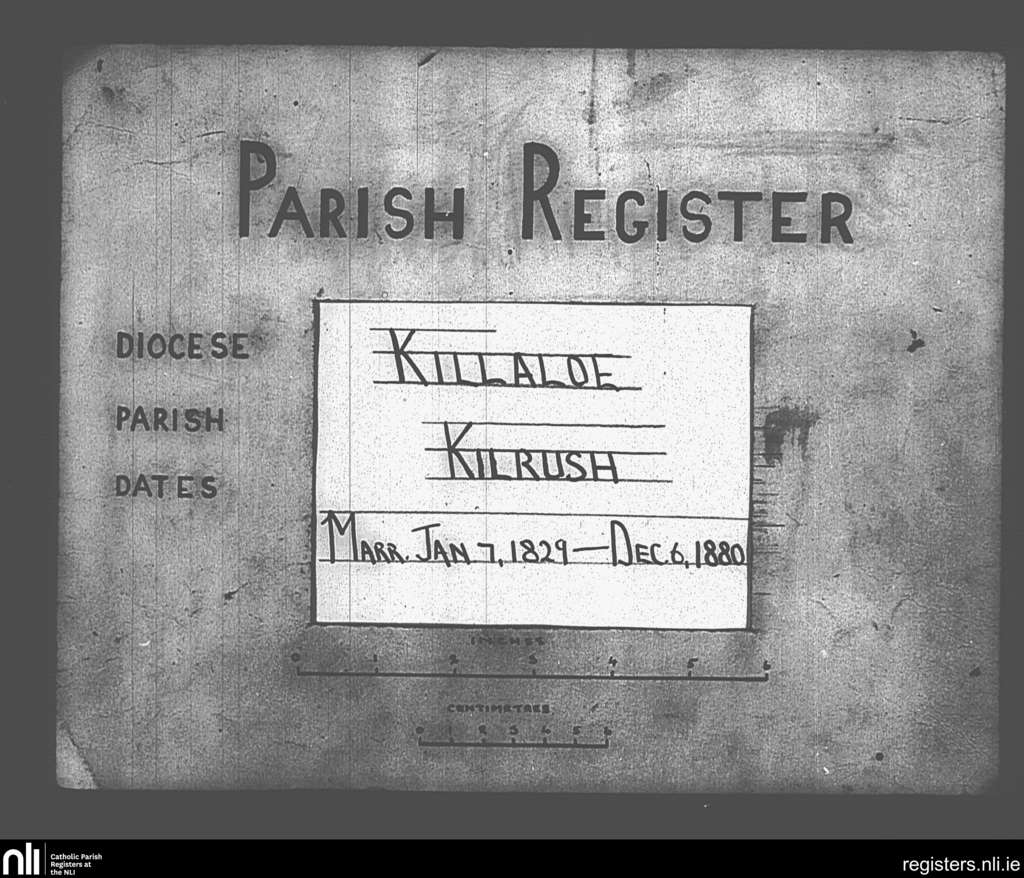 PARISH REGISTER
DIOCESE KILLALOE
PARISH KILRUSH
DATES MARR. JAN 7, 1829—DEC. 6, 1880
INCHES
0 1 2 3 4 5 6
CENTIMETRES
0 1 2 3 4 5 6
nli Catholic Parish
Registers at
the NLI
registers.nli.ie